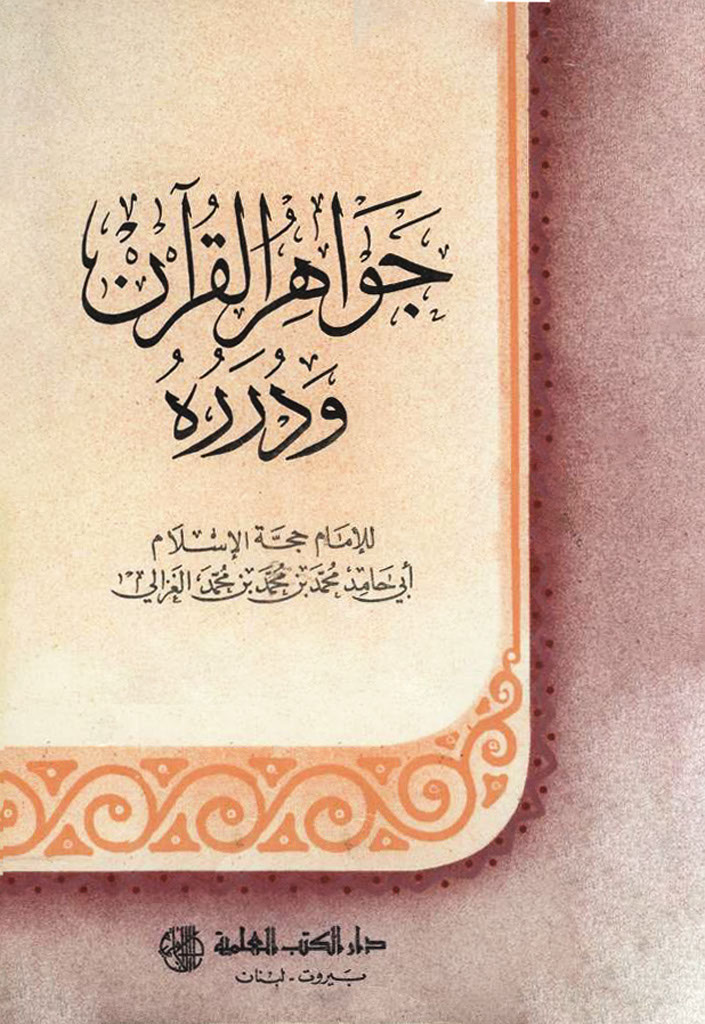 جَوَاهِرُ القُرآنِ
وَدُرَرُهُ
للإمَام حجَّة الإسْلَام
أبي حَامِد محُمَّد بن محُمَّد بن محُمَّد الغَزالي
دار الكتب العلمية
بَيروت - لبنان